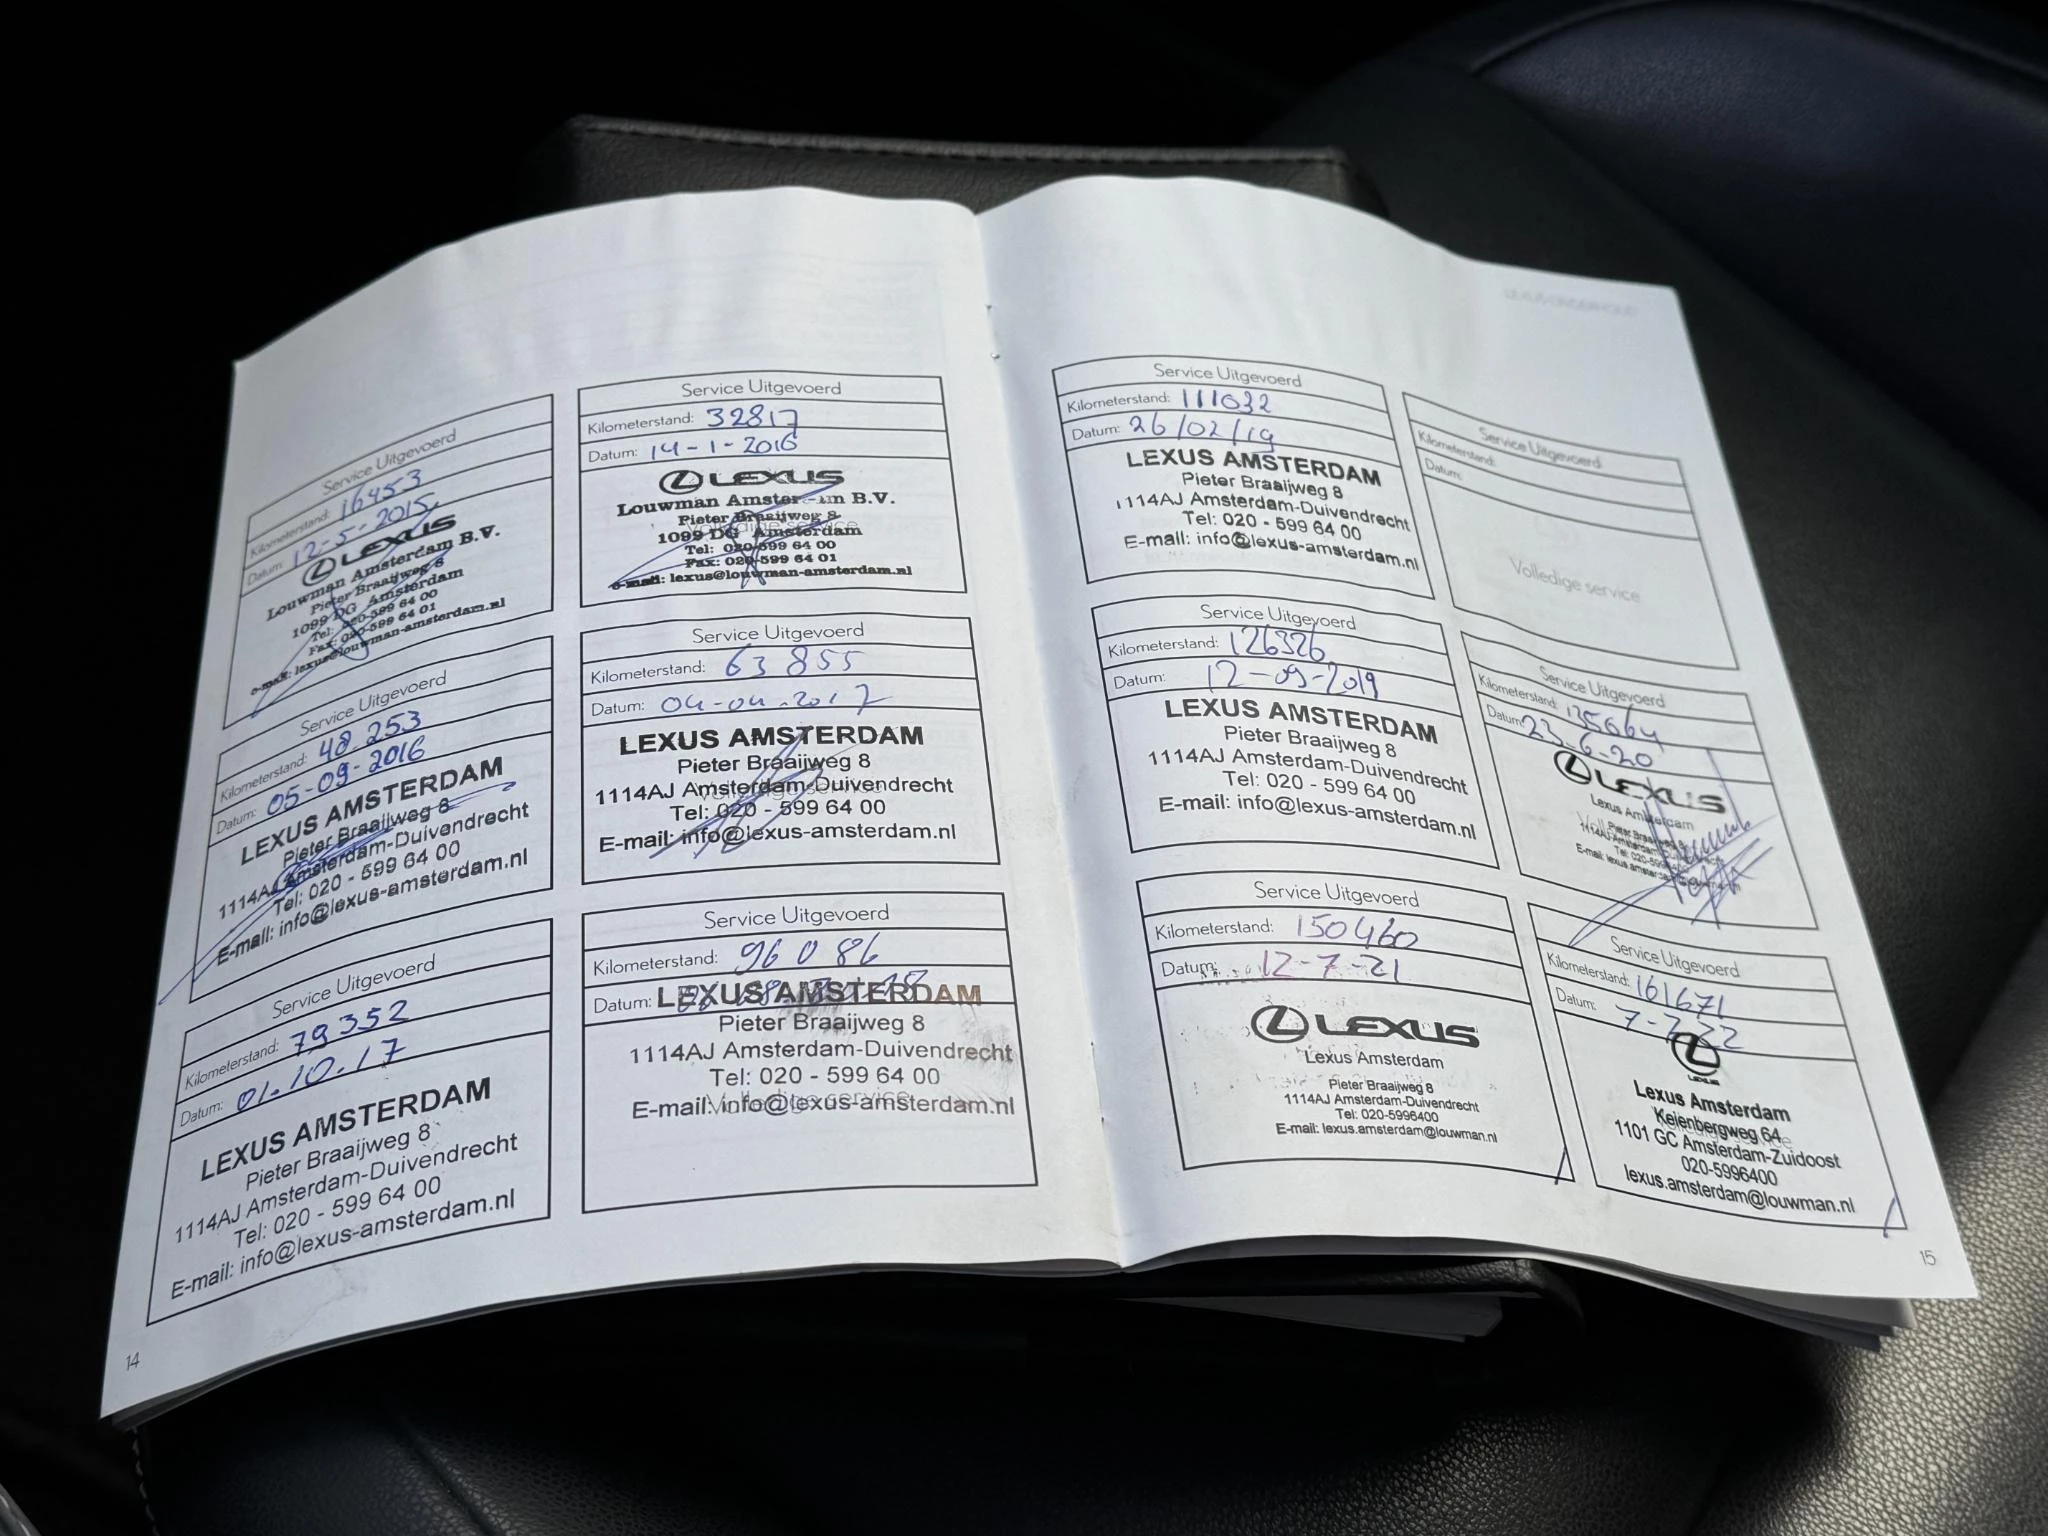 Service Uitgevoerd
Kilometerstand: 16453
Datum: 12-5-2015
LEXUS
Louwman Amsterdam B.V.
Pieter Braaijweg 8
1099 DG Amsterdam
Tel: 020-599 64 00
Fax: 020-599 64 01
e-mail: lexus@louwman-amsterdam.nl
Service Uitgevoerd
Kilometerstand: 32817
Datum: 14-1-2016
LEXUS
Louwman Amsterdam B.V.
Pieter Braaijweg 8
Volledige service
1099 DG Amsterdam
Tel: 020-599 64 00
Fax: 020-599 64 01
e-mail: lexus@louwman-amsterdam.nl
Service Uitgevoerd
Kilometerstand: 48.253
Datum: 05-09-2016
LEXUS AMSTERDAM
Pieter Braaijweg 8
1114AJ Amsterdam-Duivendrecht
Tel: 020 - 599 64 00
E-mail: info@lexus-amsterdam.nl
Service Uitgevoerd
Kilometerstand: 63855
Datum: 04-04-2017
LEXUS AMSTERDAM
Pieter Braaijweg 8
1114AJ Amsterdam-Duivendrecht
Volledige service
Tel: 020 - 599 64 00
E-mail: info@lexus-amsterdam.nl
Service Uitgevoerd
Kilometerstand: 79352
Datum: 01.10.17
LEXUS AMSTERDAM
Pieter Braaijweg 8
1114AJ Amsterdam-Duivendrecht
Tel: 020 - 599 64 00
E-mail: info@lexus-amsterdam.nl
Service Uitgevoerd
Kilometerstand: 96086
Datum:
LEXUS AMSTERDAM
Pieter Braaijweg 8
1114AJ Amsterdam-Duivendrecht
Tel: 020 - 599 64 00
Volledige service
E-mail: info@lexus-amsterdam.nl
14
Service Uitgevoerd
Kilometerstand: 111032
Datum: 26/02/19
LEXUS AMSTERDAM
Pieter Braaijweg 8
1114AJ Amsterdam-Duivendrecht
Tel: 020 - 599 64 00
E-mail: info@lexus-amsterdam.nl
Service Uitgevoerd
Kilometerstand:
Datum:
Volledige service
Service Uitgevoerd
Kilometerstand: 126326
Datum: 12-09-2019
LEXUS AMSTERDAM
Pieter Braaijweg 8
1114AJ Amsterdam-Duivendrecht
Tel: 020 - 599 64 00
E-mail: info@lexus-amsterdam.nl
Service Uitgevoerd
Kilometerstand: 135664
Datum: 23-6-20
LEXUS
Lexus Amsterdam
Service Uitgevoerd
Kilometerstand: 150460
Datum: 12-7-21
LEXUS
Lexus Amsterdam
Pieter Braaijweg 8
1114AJ Amsterdam-Duivendrecht
Tel: 020-5996400
E-mail: lexus.amsterdam@louwman.nl
Service Uitgevoerd
Kilometerstand: 161671
Datum: 7-7-22
LEXUS
Lexus Amsterdam
Keienbergweg 64
1101 GC Amsterdam-Zuidoost
020-5996400
lexus.amsterdam@louwman.nl
15